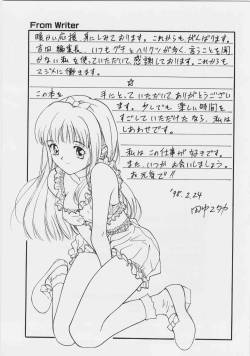 From Writer
暖かい応援、身にしみております。これからもがんばります。
吉田編集長、いつもグチとヘリクツが多く、言うことを聞
かない私を使っていただいて、感謝しております。これからも
マジメに働きます。
☆
この本を 手にとっていただいてありがとうござい
ます。少しでも 楽しい時間を
すごしていただけたなら、私は
しあわせです。
私は この仕事が 好きです。
また、いつか お会いしましょう。
お元気で!!
'98.2.24